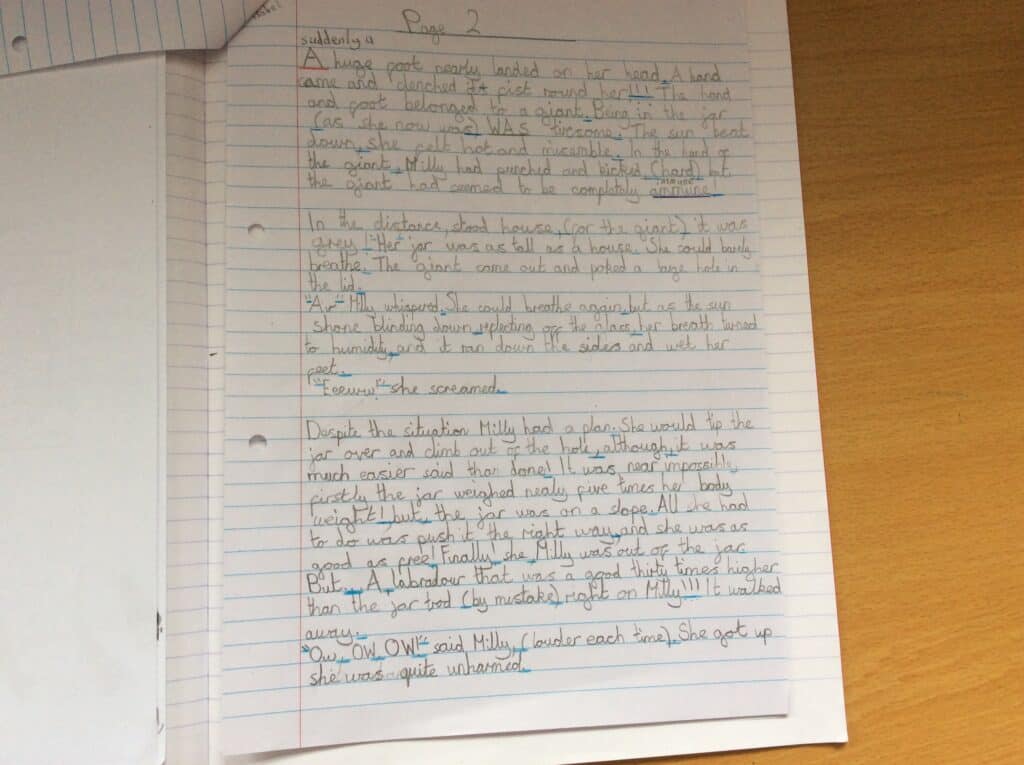 Page 2
suddenly a
A huge foot nearly landed on her head. A hand
came and clenched It fist round her!!! The hand
and foot belonged to a giant. Being in the jar
(as she now was) WAS tiresome. The sun beat
down, she felt hot and miserable. In the hand of
the giant, Milly had punched and kicked, (hard) but
immune
the giant had seemed to be completely ammune!
In the distance, stood house, (for the giant) it was
grey! "Her jar was as tall as a house. She could barely
breathe. The giant came out and poked a large hole in
the lid.
"Air" Milly whispered. She could breathe again, but as the sun
shone blinding down, reflecting off the glass, her breath turned
to humidity, and it ran down the sides and wet her
feet.
"Eeeuww!" she screamed.
Despite the situation Milly had a plan. She would tip the
jar over and climb out of the hole, although, it was
much easier said than done! It was, near impossible,
firstly the jar weighed nealy five times her body
weight! but, the jar was on a slope. All she had
to do was push it the right way, and she was as
good as free! Finally! she, Milly was out of the jar.
But... A labradour that was a good thirty times higher
than the jar trod (by mistake) right on Milly!!! It walked
away.
"Ow, OW, OW!" said Milly, (louder each time). She got up
she was quite unharmed.